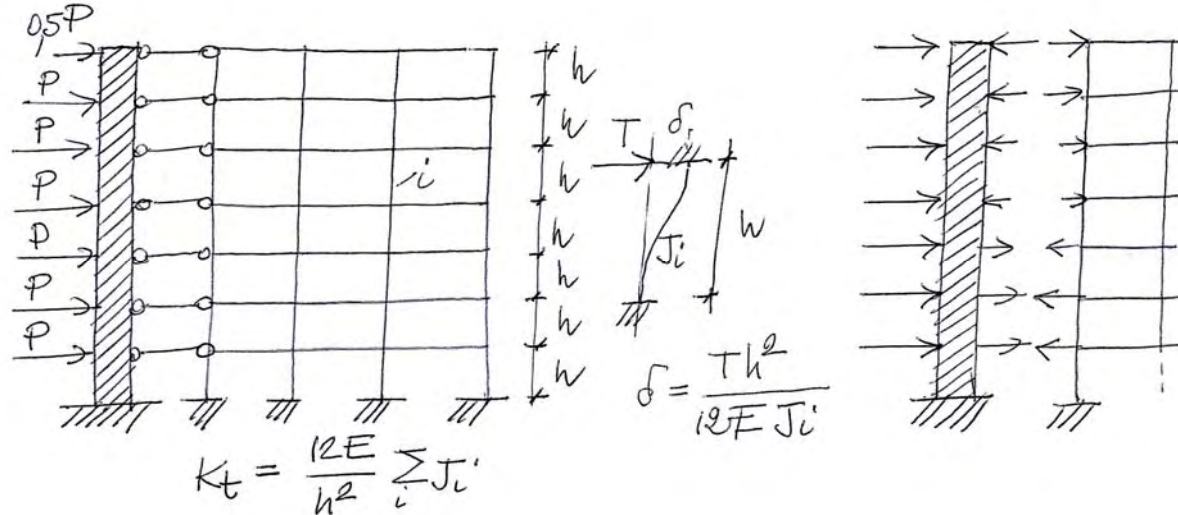 0,5P
P
P
P
P
P
P
h
h
h
h
h
h
h
i
T δ
h
Ji
δ = Th² / 12EJi
Kt = 12E / h² ∑i Ji